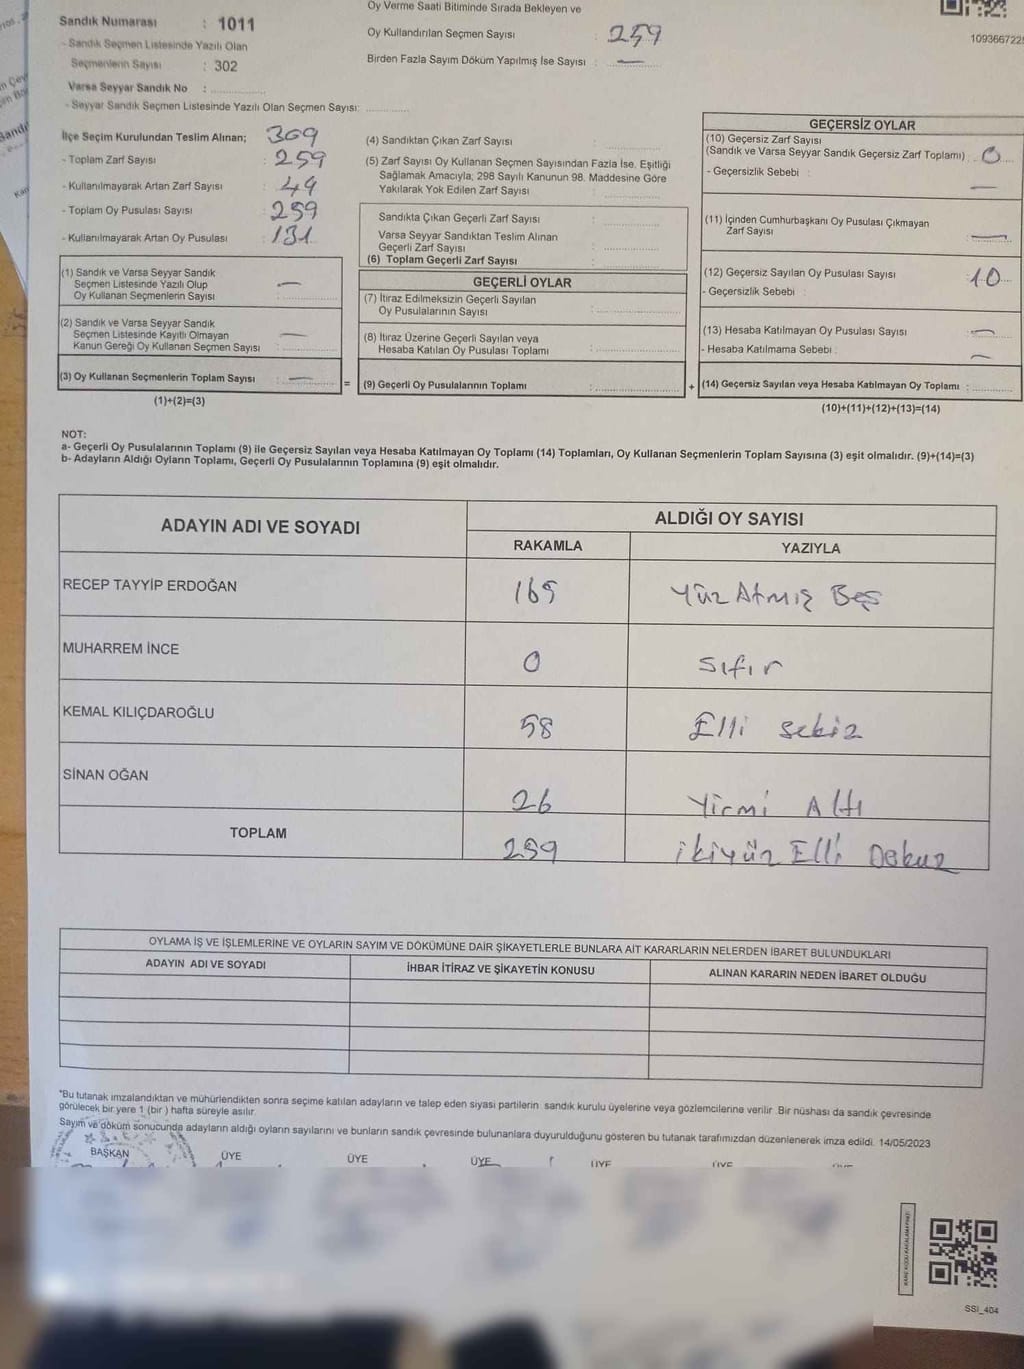 Sandık Numarası : 1011
- Sandık Seçmen Listesinde Yazılı Olan
Seçmenlerin Sayısı : 302
Varsa Seyyar Sandık No :
- Seyyar Sandık Seçmen Listesinde Yazılı Olan Seçmen Sayısı:
Oy Verme Saati Bitiminde Sırada Bekleyen ve
Oy Kullandırılan Seçmen Sayısı : 259
Birden Fazla Sayım Döküm Yapılmış İse Sayısı : —
109366722
İlçe Seçim Kurulundan Teslim Alınan; 309
- Toplam Zarf Sayısı : 259
- Kullanılmayarak Artan Zarf Sayısı : 49
- Toplam Oy Pusulası Sayısı : 259
- Kullanılmayarak Artan Oy Pusulası : 131
(1) Sandık ve Varsa Seyyar Sandık
Seçmen Listesinde Yazılı Olup
Oy Kullanan Seçmenlerin Sayısı : —
(2) Sandık ve Varsa Seyyar Sandık
Seçmen Listesinde Kayıtlı Olmayan
Kanun Gereği Oy Kullanan Seçmen Sayısı : —
(3) Oy Kullanan Seçmenlerin Toplam Sayısı : —
(1)+(2)=(3)
(4) Sandıktan Çıkan Zarf Sayısı :
(5) Zarf Sayısı Oy Kullanan Seçmen Sayısından Fazla İse, Eşitliği
Sağlamak Amacıyla; 298 Sayılı Kanunun 98. Maddesine Göre
Yakılarak Yok Edilen Zarf Sayısı :
Sandıkta Çıkan Geçerli Zarf Sayısı :
Varsa Seyyar Sandıktan Teslim Alınan
Geçerli Zarf Sayısı :
(6) Toplam Geçerli Zarf Sayısı :
GEÇERLİ OYLAR
(7) İtiraz Edilmeksizin Geçerli Sayılan
Oy Pusulalarının Sayısı :
(8) İtiraz Üzerine Geçerli Sayılan veya
Hesaba Katılan Oy Pusulası Toplamı :
= (9) Geçerli Oy Pusulalarının Toplamı :
GEÇERSİZ OYLAR
(10) Geçersiz Zarf Sayısı
(Sandık ve Varsa Seyyar Sandık Geçersiz Zarf Toplamı) : 0
- Geçersizlik Sebebi : —
(11) İçinden Cumhurbaşkanı Oy Pusulası Çıkmayan
Zarf Sayısı : —
(12) Geçersiz Sayılan Oy Pusulası Sayısı : 10
- Geçersizlik Sebebi :
(13) Hesaba Katılmayan Oy Pusulası Sayısı : —
- Hesaba Katılmama Sebebi : —
+ (14) Geçersiz Sayılan veya Hesaba Katılmayan Oy Toplamı :
(10)+(11)+(12)+(13)=(14)
NOT:
a- Geçerli Oy Pusulalarının Toplamı (9) ile Geçersiz Sayılan veya Hesaba Katılmayan Oy Toplamı (14) Toplamları, Oy Kullanan Seçmenlerin Toplam Sayısına (3) eşit olmalıdır. (9)+(14)=(3)
b- Adayların Aldığı Oyların Toplamı, Geçerli Oy Pusulalarının Toplamına (9) eşit olmalıdır.
ADAYIN ADI VE SOYADI
ALDIĞI OY SAYISI
RAKAMLA YAZIYLA
RECEP TAYYİP ERDOĞAN 165 Yüz Atmış Beş
MUHARREM İNCE 0 Sıfır
KEMAL KILIÇDAROĞLU 58 Elli Sekiz
SİNAN OĞAN 26 Yirmi Altı
TOPLAM 259 ikiyüz Elli Dokuz
OYLAMA İŞ VE İŞLEMLERİNE VE OYLARIN SAYIM VE DÖKÜMÜNE DAİR ŞİKAYETLERLE BUNLARA AİT KARARLARIN NELERDEN İBARET BULUNDUKLARI
ADAYIN ADI VE SOYADI İHBAR İTİRAZ VE ŞİKAYETİN KONUSU ALINAN KARARIN NEDEN İBARET OLDUĞU
*Bu tutanak imzalandıktan ve mühürlendikten sonra seçime katılan adayların ve talep eden siyasi partilerin sandık kurulu üyelerine veya gözlemcilerine verilir. Bir nüshası da sandık çevresinde
görülecek bir yere 1 (bir ) hafta süreyle asılır.
Sayım ve döküm sonucunda adayların aldığı oyların sayılarını ve bunların sandık çevresinde bulunanlara duyurulduğunu gösteren bu tutanak tarafımızdan düzenlenerek imza edildi. 14/05/2023
BAŞKAN ÜYE ÜYE ÜYE ÜYE ÜYE
SSI_404